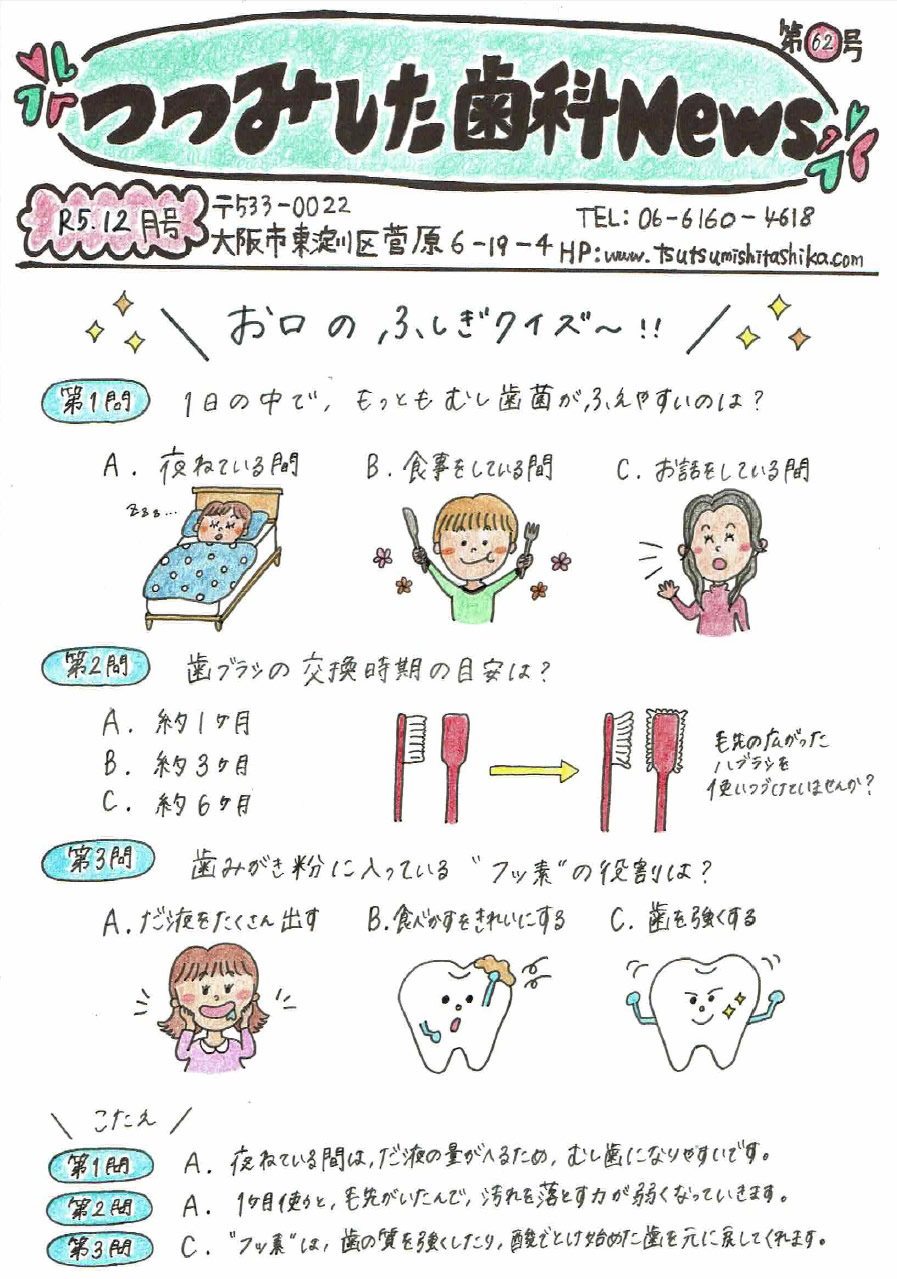 第62号
つつみした歯科News
R5.12月号
〒533-0022
大阪市東淀川区菅原6-19-4
TEL:06-6160-4618
HP:www.tsutsumishitashika.com
お口のふしぎクイズ~!!
第1問 1日の中で、もっともむし歯菌がふえやすいのは?
A. 夜ねている間 B. 食事をしている間 C. お話をしている間
zzz...
第2問 歯ブラシの交換時期の目安は?
A. 約1ヶ月
B. 約3ヶ月
C. 約6ヶ月
毛先の広がった
ハブラシを
使いつづけていませんか?
第3問 歯みがき粉に入っている"フッ素"の役割は?
A. だ液をたくさん出す B. 食べかすをきれいにする C. 歯を強くする
こたえ
第1問 A. 夜ねている間は、だ液の量がへるため、むし歯になりやすいです。
第2問 A. 1ヶ月使うと、毛先がいたんで、汚れを落とす力が弱くなっていきます。
第3問 C. "フッ素"は、歯の質を強くしたり、酸でとけ始めた歯を元に戻してくれます。